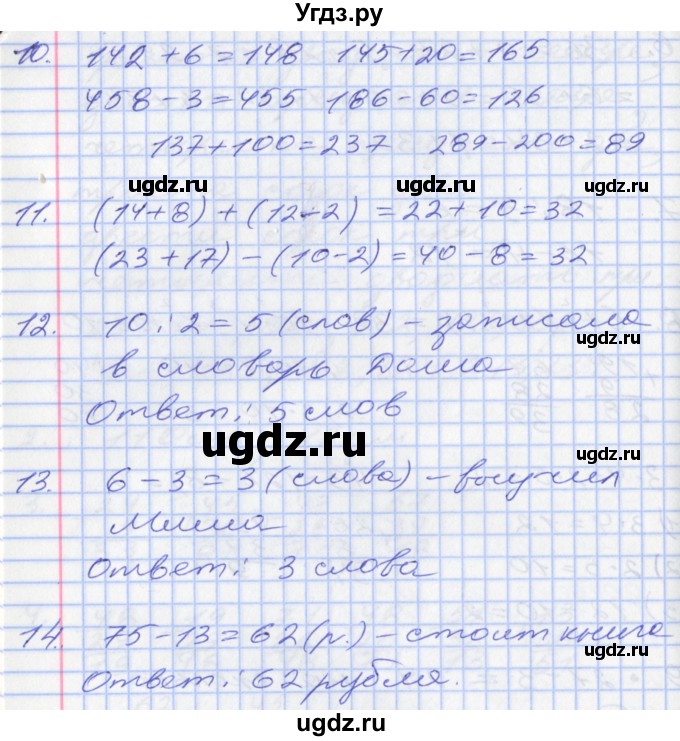 Угдз.ру
10. 142 + 6 = 148 145+20=165
458 - 3 = 455 186-60=126
137+100=237 289-200=89
ugdz.ru ugdz.ru
11. (14+8) + (12-2) = 22 + 10 = 32
(23+17) - (10-2) = 40 - 8 = 32
12. 10 : 2 = 5 (слов) - записала
ugdz.ru
в словарь Даша
Ответ: 5 слов
ugdz.ru
13. 6 - 3 = 3 (слова) - выучил
Миша
ugdz.ru
Ответ: 3 слова
14. 75-13=62 (р.) - стоит книга
ugdz.ru
Ответ: 62 рубля.
ugdz.ru